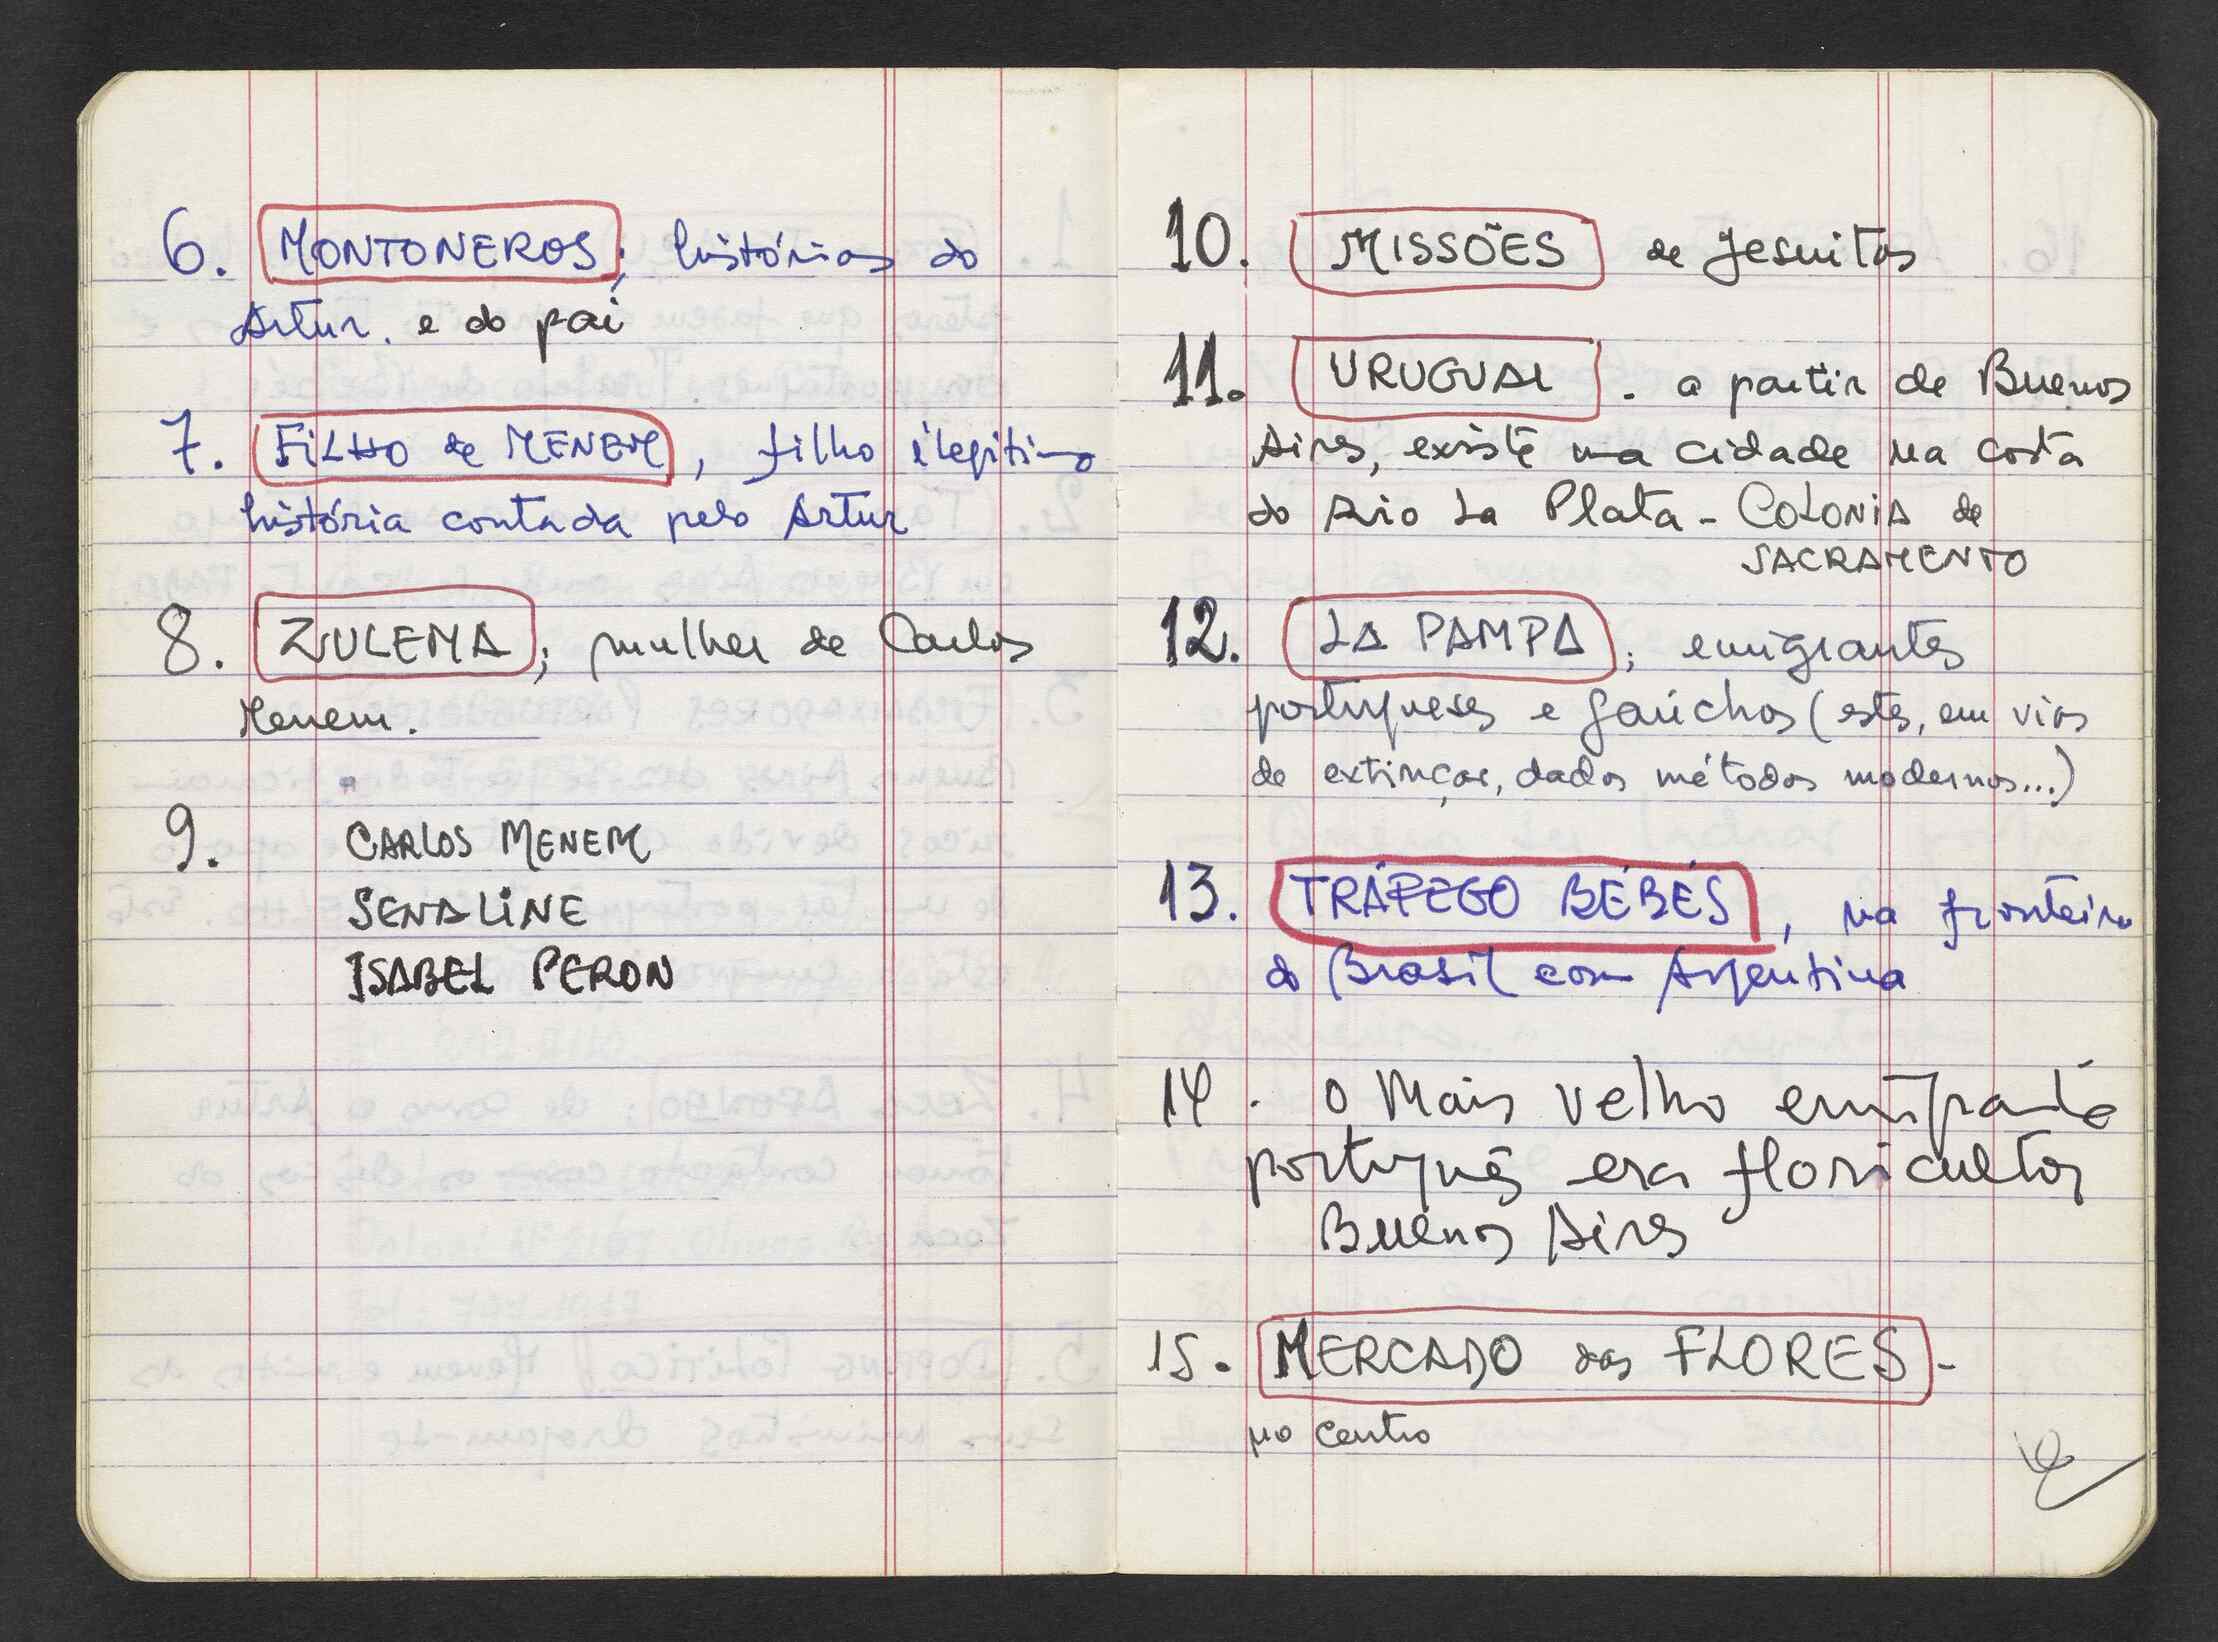 6. MONTONEROS; histórias do
Artur. e do pai
7. FILHO de MENEM, filho ilegitimo
história contada pelo Artur
8. ZULEMA; mulher de Carlos
Menem.
9. CARLOS MENEM
SENALINE
ISABEL PERON
10. MISSÕES de Jesuitas
11. URUGUAI. a partir de Buenos
Aires, existe uma cidade na costa
do Rio La Plata - COLONIA de
SACRAMENTO
12. LA PAMPA; emigrantes
portugueses e gaúchos (estes, em vias
de extinçao, dados métodos modernos...)
13. TRÁFEGO BÉBÉS, na fronteira
do Brasil com Argentina
14. O Mais velho emigrante
português era floricultor
Buenos Aires
15. MERCADO das FLORES -
no centro